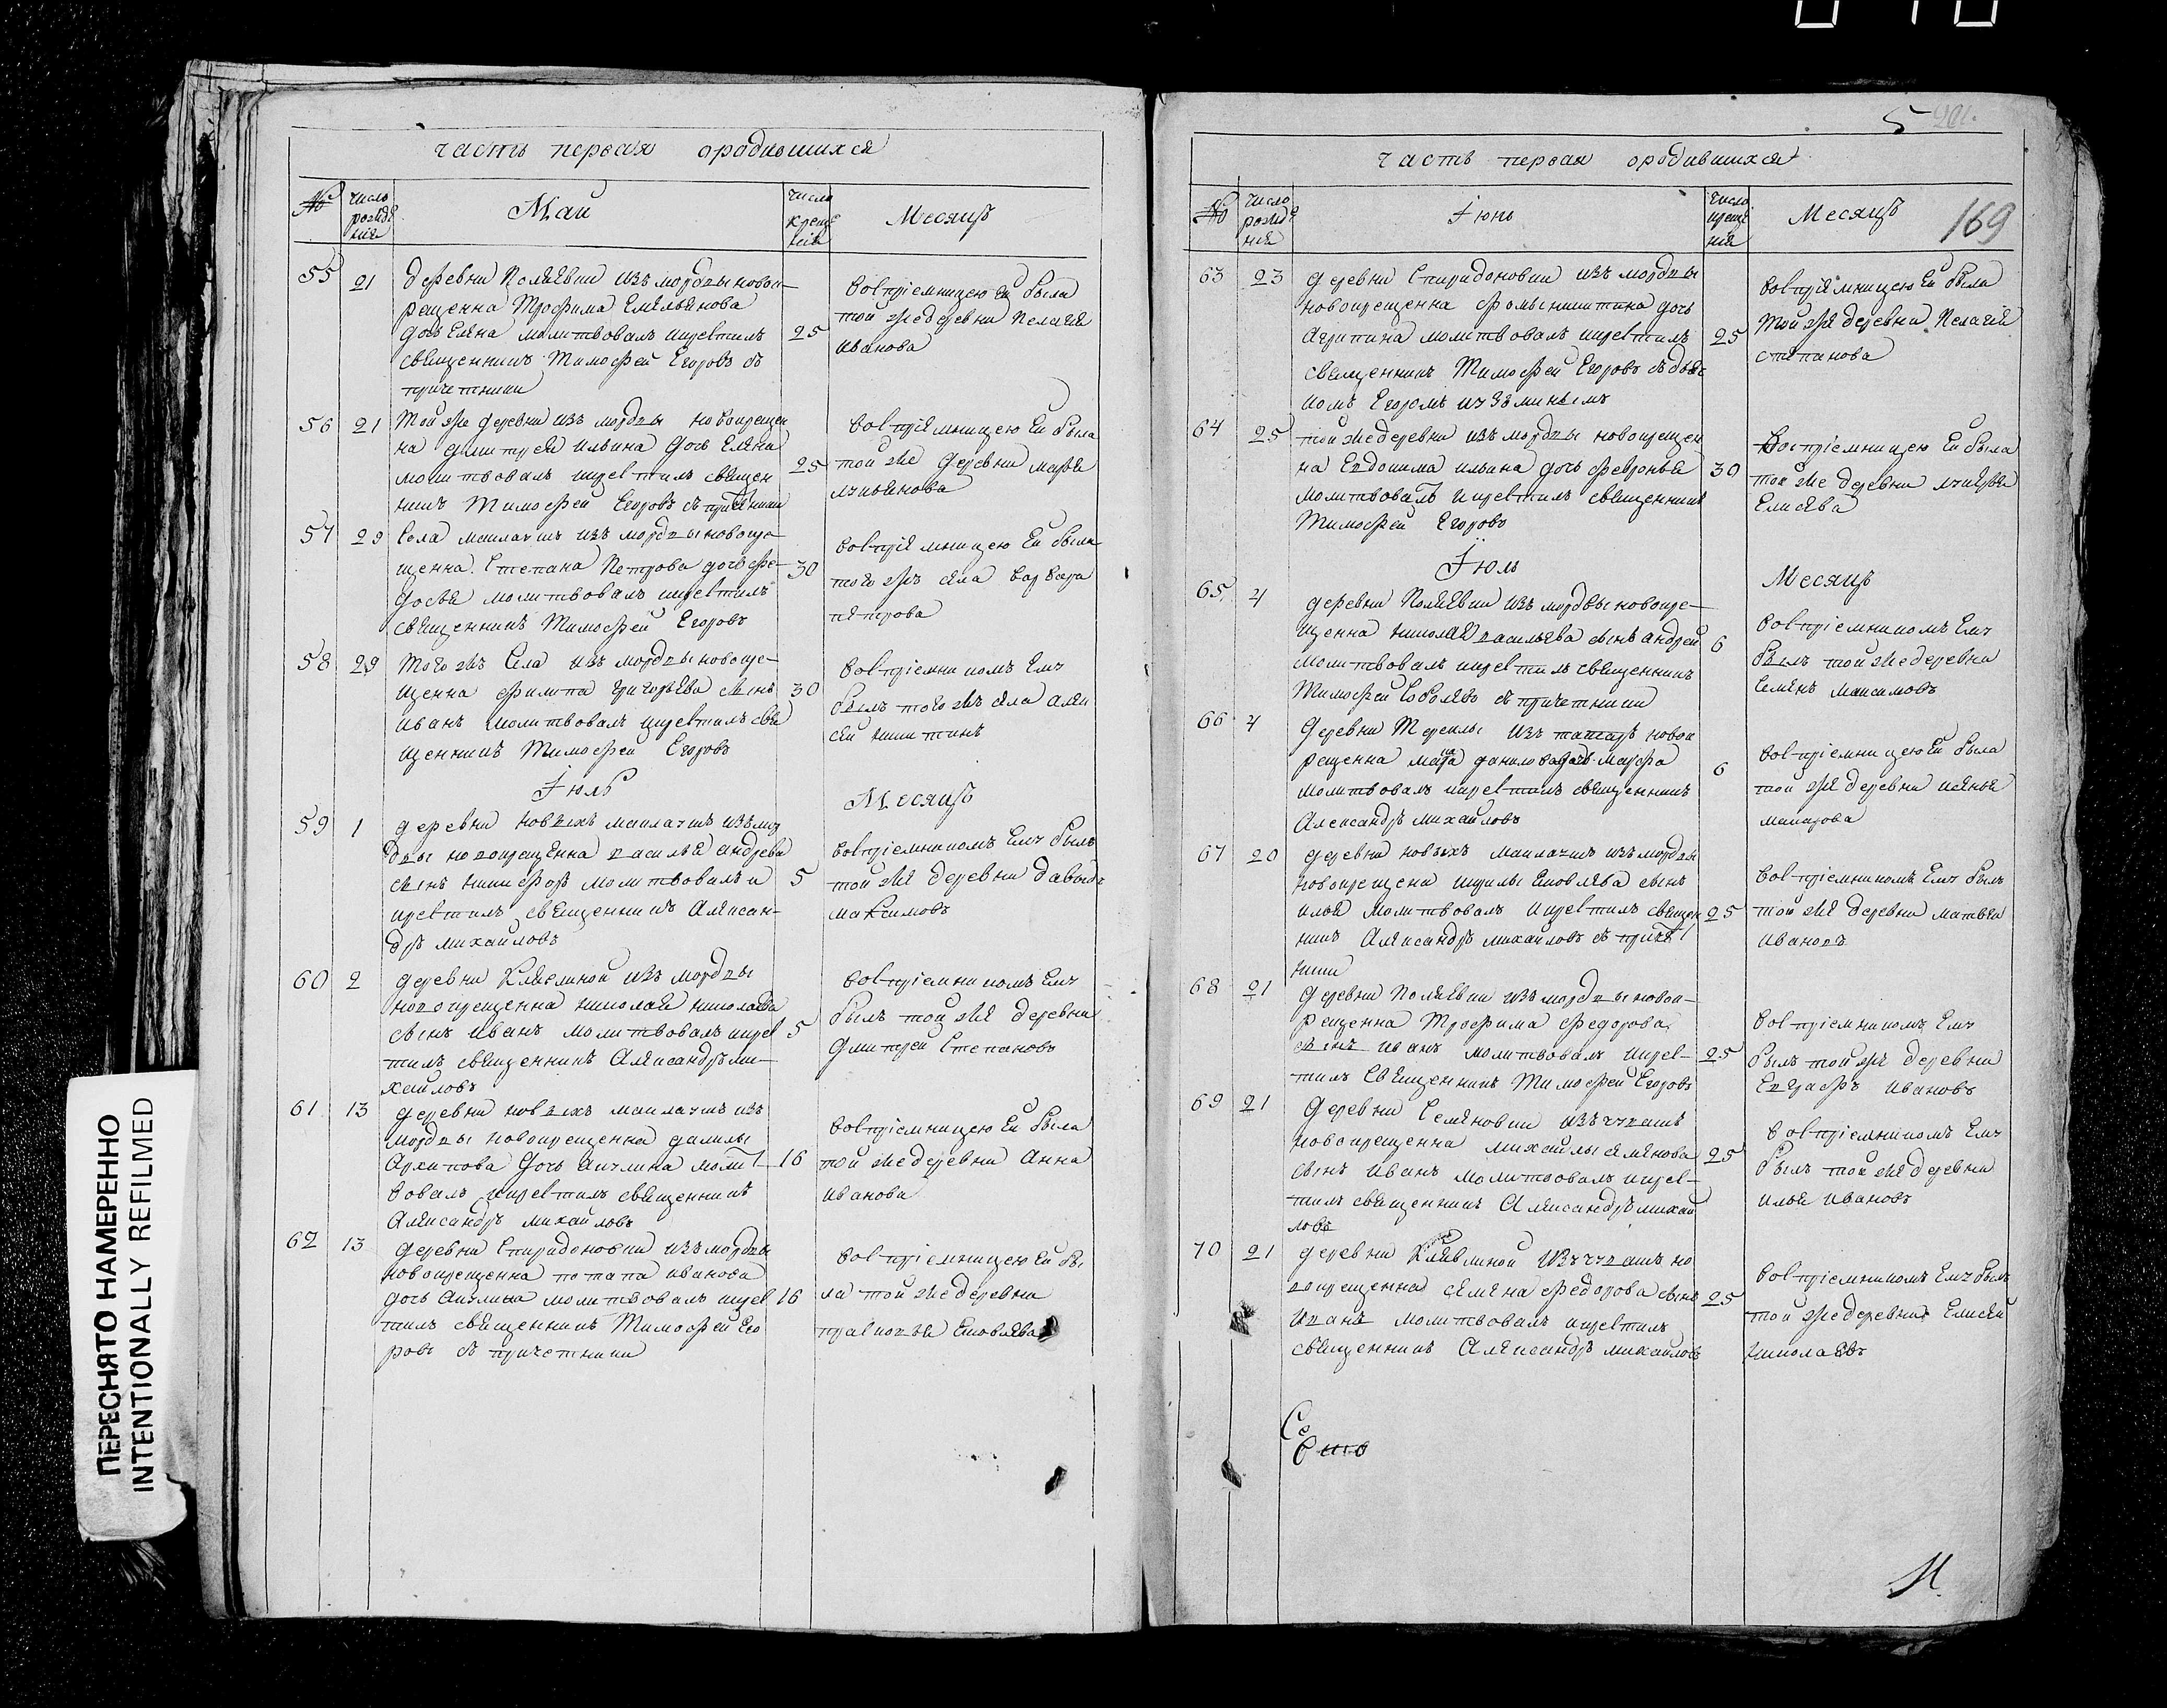 часть первая ородившихся
№
число рожде нія
Май
число креще нія
Месяцъ
55
21
деревни Поляевки изъ мордвы новок
рещенна Трофима Емельянова
дочь Елена молитвовалъ икрестилъ
священникъ Тимофей Егоровъ съ
причетники
25
воспріемницею ей была
той же деревни Пелагея
Иванова
56
21
той же деревни изъ мордвы новокрещен
на Дмитрея Ильина дочь Елена
молитвовалъ икрестилъ священ
никъ Тимофей Егоровъ съ причетники
25
воспріемницею ей была
той же деревни марья
57
29
Села маклаушъ изъ мордвы новокре
щенна Степана Петрова дочь Фе
досья молитвовалъ икрестилъ
священникъ Тимофей Егоровъ
30
воспріемницею ей была
того жъ села варвара
петрова
58
29
того жъ Села изъ мордвы новокре
щенна Филипа григорьева сынъ
иванъ молитвовалъ икрестилъ свя
щенникъ Тимофей Егоровъ
30
воспріемникомъ ему
былъ того жъ села алек
сей никитинъ
Іюнь
Месяцъ
59
1
деревни новыхъ маклаушъ изъ мор
двы новокрещенна василья андреева
сынъ никифоръ молитвовалъ и
крестилъ священникъ Александръ
михайловъ
5
воспріемникомъ ему былъ
той же деревни давыдъ
максимовъ
60
2
деревни Клявлиной изъ мордвы
новокрещенна николая николаева
сынъ иванъ молитвовалъ икрес
тилъ священникъ Александръ ми
хайловъ
5
воспріемникомъ ему
былъ той же деревни
Дмитрей Степановъ
61
13
деревни новыхъ маклаушъ изъ
мордвы новокрещенна данилы
Архипова дочь акулина молит
вовалъ икрестилъ священникъ
Александръ михайловъ
16
воспріемницею ей была
той же деревни Анна
иванова
62
13
деревни Спиридоновки изъ мордвы
новокрещенна потапа иванова
дочь акулина молитвовалъ икрес
тилъ священникъ Тимофей Его
ровъ съ причетники
16
воспріемницею ей бы
ла той же деревни
прасковья Яковлева
5
часть первая ородившихся
№
число рожде нія
Іюнь
число креще нія
Месяцъ
169
63
23
деревни Спиридоновки изъ мордвы
новокрещенна Фомы никитина дочь
Агрипина молитвовалъ икрестилъ
священникъ Тимофей Егоровъ съ дьяч
комъ Егоромъ
25
воспріемницею ей была
той же деревни Пелагея
степанова
64
25
той же деревни изъ мордвы новокрещен
на Евдокима ильина дочь февронья
молитвовалъ икрестилъ священникъ
Тимофей Егоровъ
30
Воспріемницею ей была
той же деревни лукерья
Елисева
Іюль
Месяцъ
65
4
деревни Поляевки изъ мордвы новокре
щенна николая васильева сынъ андрей
молитвовалъ икрестилъ священникъ
Тимофей Соболевъ съ причетники
6
воспріемникомъ ему
былъ той же деревни
Семенъ максимовъ
66
4
деревни Тереклы изъ татаръ новок
рещенна данилова дочь марфа
молитвовалъ икрестилъ священникъ
Александръ михайловъ
6
воспріемницею ей была
той же деревни
макарова
67
20
деревни новыхъ маклаушъ изъ мордвы
новокрещена кирилы Яковлева сынъ
илья молитвовалъ икрестилъ священ
никъ Александръ михайловъ съ причет
ники
25
воспріемникомъ ему былъ
той же деревни матвей
ивановъ
68
21
деревни Поляевки изъ мордвы новок
рещенна Трофима федорова
сынъ иванъ молитвовалъ икрес
тилъ священникъ Тимофей Егоровъ
25
воспріемникомъ ему
былъ той же деревни
Евграфъ ивановъ
69
21
деревни Семеновки изъ чувашъ
новокрещенна михайлы семенова
сынъ иванъ молитвовалъ икрес
тилъ священникъ Александръ михай
ловъ
25
воспріемникомъ ему
былъ той же деревни
илья ивановъ
70
21
деревни Клявлиной изъ чувашъ но
вокрещенна семена федорова сынъ
иванъ молитвовалъ икрестилъ
священникъ Александръ михайловъ
25
воспріемникомъ ему былъ
той же деревни Елисей
николаевъ
ПЕРЕСНЯТО НАМЕРЕННО
INTENTIONALLY REFILMED